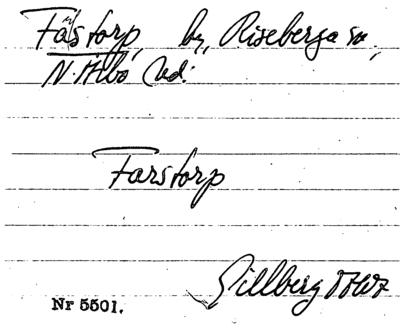 Fastorp, by, Riseberga sn,
N. Åsbo hd.
Farstorp
Gillberg 1767
Nr 5501.